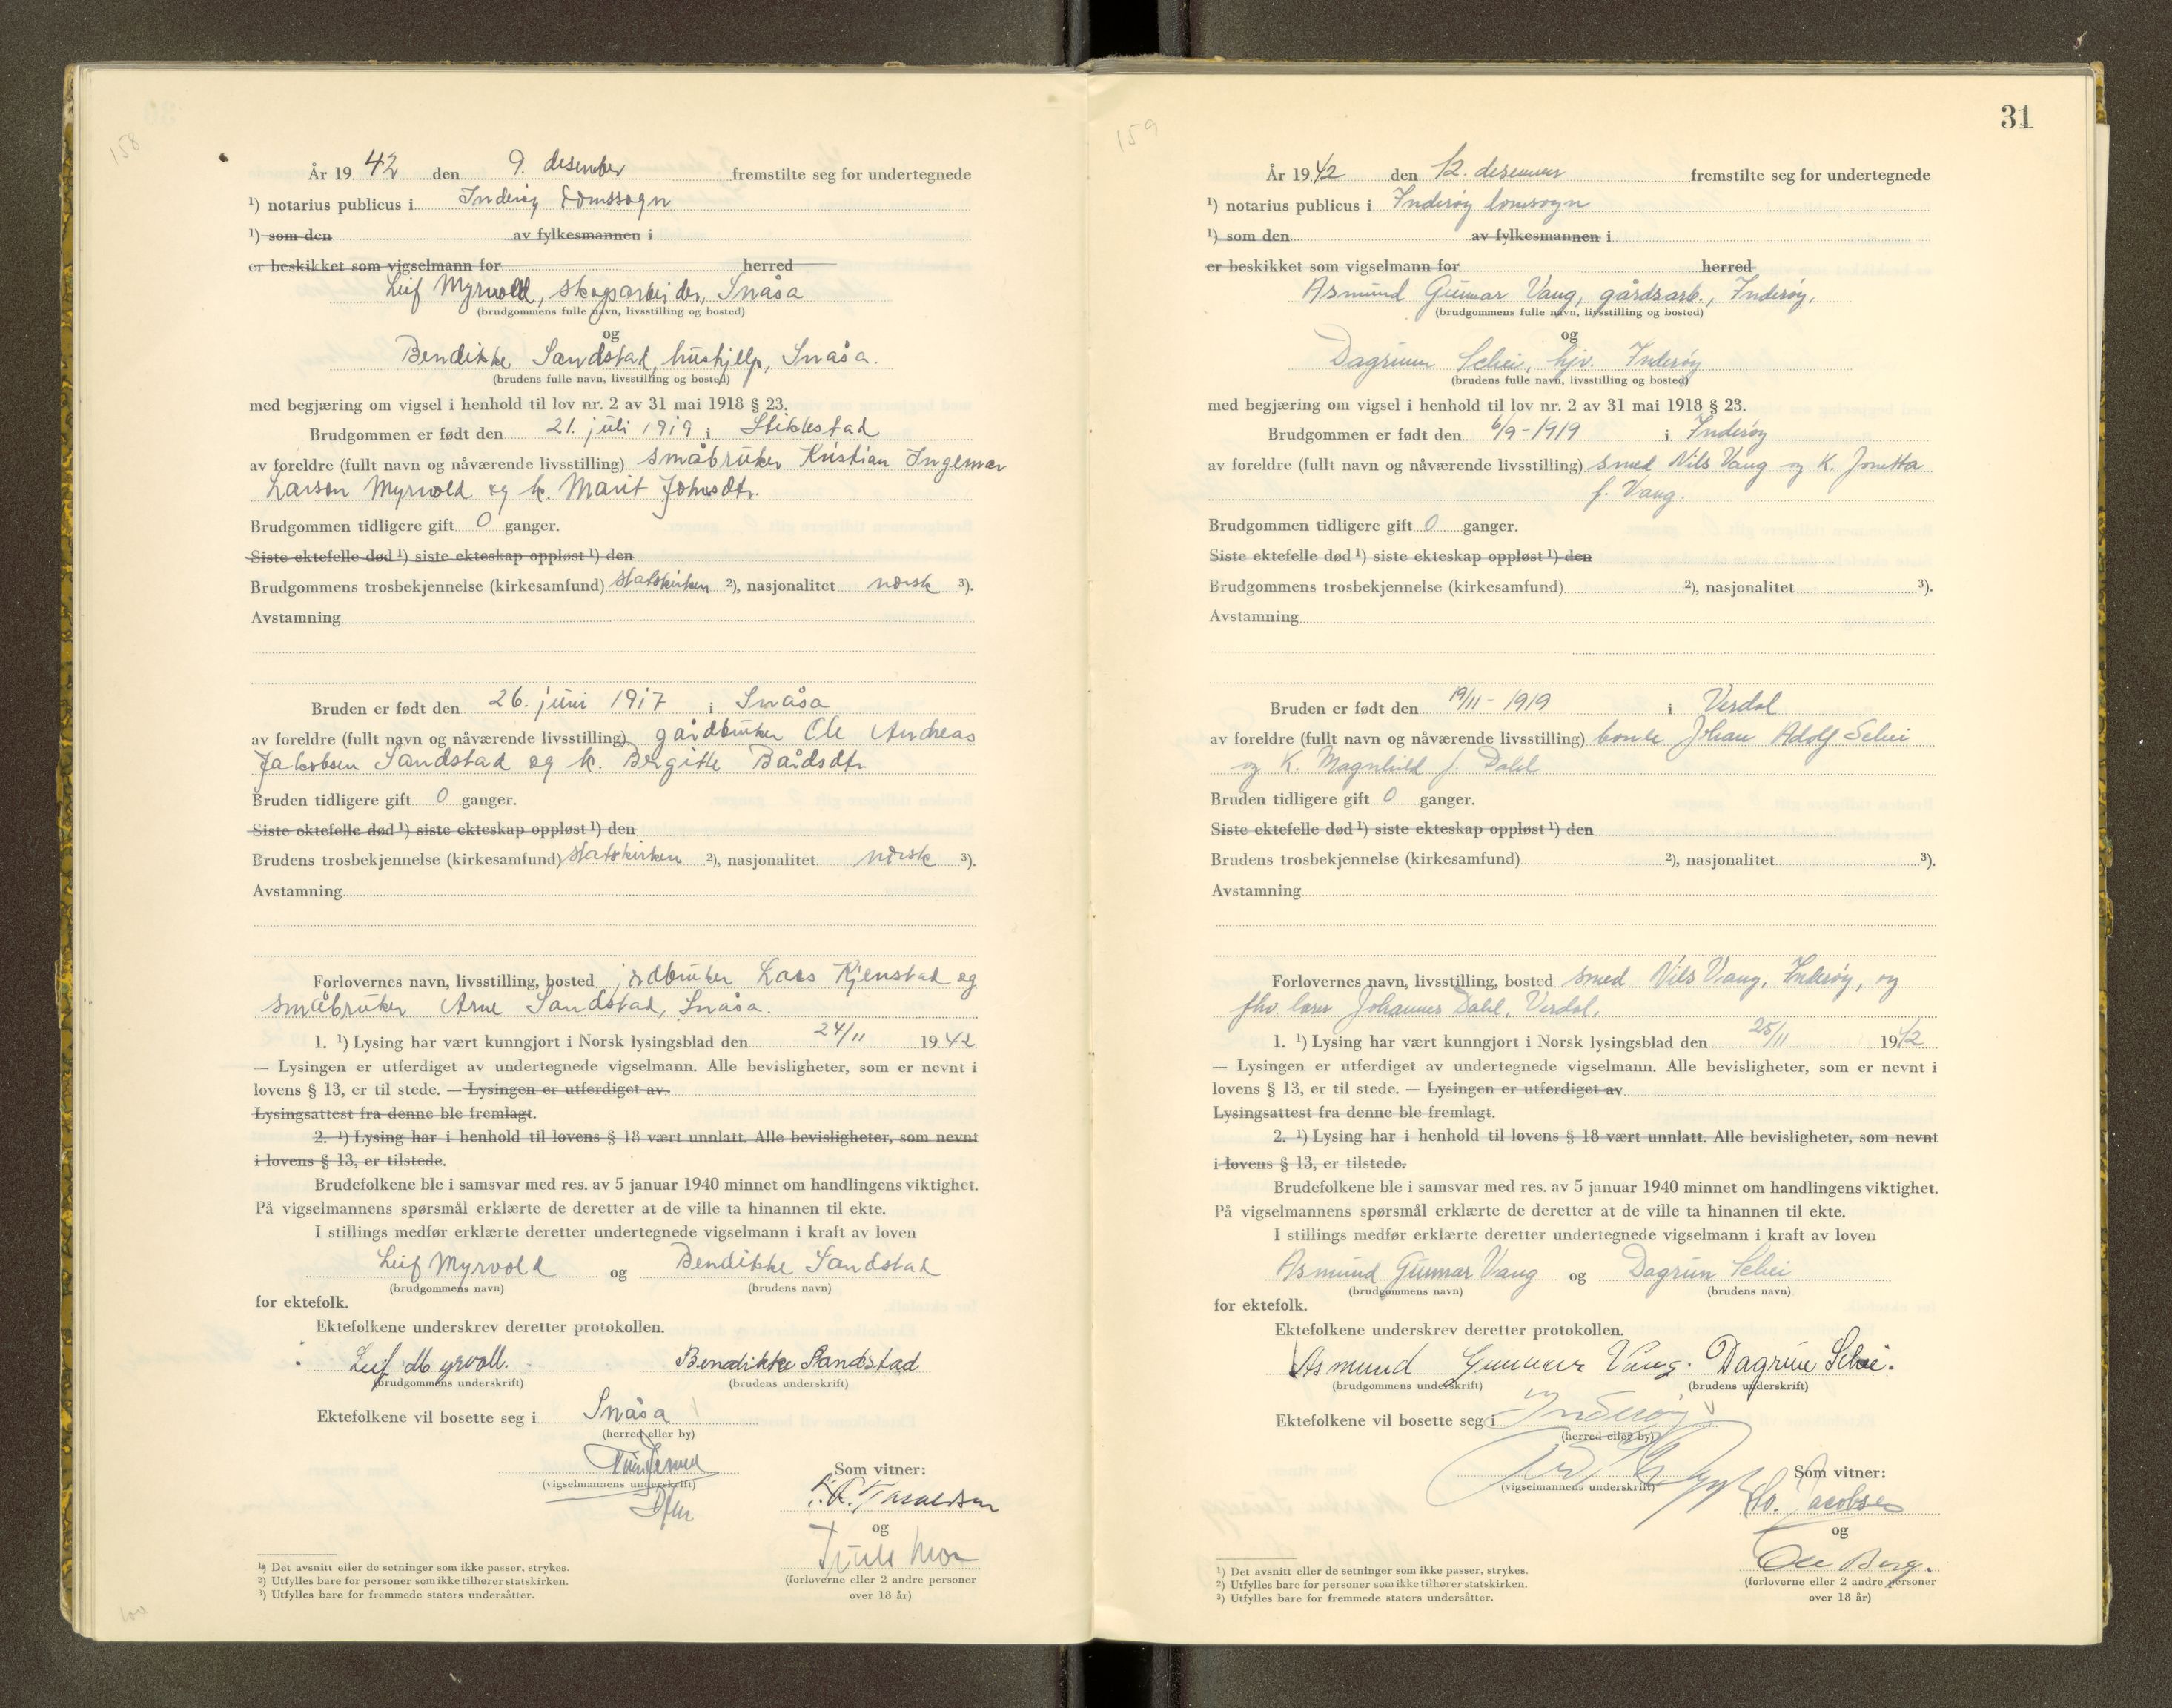 158
År 1942 den 9. desember fremstilte seg for undertegnede
¹) notarius publicus i Inderøy domssogn
¹) som den av fylkesmannen i
er beskikket som vigselmann for herred
Leif Myrvold, skogsarbeider, Snåsa
(brudgommens fulle navn, livsstilling og bosted)
og
Bendikke Sandstad, hushjelp, Snåsa.
(brudens fulle navn, livsstilling og bosted)
med begjæring om vigsel i henhold til lov nr. 2 av 31 mai 1918 § 23.
Brudgommen er født den 21. juli 1919 i Stiklestad
av foreldre (fullt navn og nåværende livsstilling) småbruker Kristian Ingemar
Larsen Myrvold og h. Marit Johnsdtr.
Brudgommen tidligere gift 0 ganger.
Siste ektefelle død ¹) siste ekteskap oppløst ¹) den
Brudgommens trosbekjennelse (kirkesamfund) statskirken ²), nasjonalitet norsk ³).
Avstamning
Bruden er født den 26. juni 1917 i Snåsa
av foreldre (fullt navn og nåværende livsstilling) gårdbruker Ole Andreas
Jakobsen Sandstad og h. Bergitte Bårdsdtr.
Bruden tidligere gift 0 ganger.
Siste ektefelle død ¹) siste ekteskap oppløst ¹) den
Brudens trosbekjennelse (kirkesamfund) statskirken ²), nasjonalitet norsk ³).
Avstamning
Forlovernes navn, livsstilling, bosted jordbruker Lars Kjenstad og
småbruker Arne Sandstad, Snåsa.
1. ¹) Lysing har vært kunngjort i Norsk lysingsblad den 24/11 1942
— Lysingen er utferdiget av undertegnede vigselmann. Alle bevisligheter, som er nevnt i
lovens § 13, er til stede. — Lysingen er utferdiget av
Lysingsattest fra denne ble fremlagt.
2. ¹) Lysing har i henhold til lovens § 18 vært unnlatt. Alle bevisligheter, som nevnt
i lovens § 13, er tilstede.
Brudefolkene ble i samsvar med res. av 5 januar 1940 minnet om handlingens viktighet.
På vigselmannens spørsmål erklærte de deretter at de ville ta hinannen til ekte.
I stillings medfør erklærte deretter undertegnede vigselmann i kraft av loven
Leif Myrvold og Bendikke Sandstad
(brudgommens navn) (brudens navn)
for ektefolk.
Ektefolkene underskrev deretter protokollen.
Leif Myrvoll. Benedikke Sandstad
(brudgommens underskrift) (brudens underskrift)
Ektefolkene vil bosette seg i Snåsa
(herred eller by)
(vigselmannens underskrift)
Som vitner:
og
(forloverne eller 2 andre personer
over 18 år)
¹) Det avsnitt eller de setninger som ikke passer, strykes.
²) Utfylles bare for personer som ikke tilhører statskirken.
³) Utfylles bare for fremmede staters undersåtter.
31
159
År 1942 den 12. desember fremstilte seg for undertegnede
¹) notarius publicus i Inderøy domsogn
¹) som den av fylkesmannen i
er beskikket som vigselmann for herred
Asmund Gunnar Vang, gårdsarb., Inderøy,
(brudgommens fulle navn, livsstilling og bosted)
og
Dagrunn Schei, hjv. Inderøy
(brudens fulle navn, livsstilling og bosted)
med begjæring om vigsel i henhold til lov nr. 2 av 31 mai 1918 § 23.
Brudgommen er født den 6/9 - 1919 i Inderøy
av foreldre (fullt navn og nåværende livsstilling) smed Nils Vang og K. Jonetta
f. Vang.
Brudgommen tidligere gift 0 ganger.
Siste ektefelle død ¹) siste ekteskap oppløst ¹) den
Brudgommens trosbekjennelse (kirkesamfund) ²), nasjonalitet ³).
Avstamning
Bruden er født den 19/11 - 1919 i Verdal
av foreldre (fullt navn og nåværende livsstilling) bonde Johan Adolf Schei
og K. Magnhild f. Dahl
Bruden tidligere gift 0 ganger.
Siste ektefelle død ¹) siste ekteskap oppløst ¹) den
Brudens trosbekjennelse (kirkesamfund) ²), nasjonalitet ³).
Avstamning
Forlovernes navn, livsstilling, bosted smed Nils Vang, Inderøy, og
fhv. lærer Johannes Dahl, Verdal.
1. ¹) Lysing har vært kunngjort i Norsk lysingsblad den 25/11 1942
— Lysingen er utferdiget av undertegnede vigselmann. Alle bevisligheter, som er nevnt i
lovens § 13, er til stede. — Lysingen er utferdiget av
Lysingsattest fra denne ble fremlagt.
2. ¹) Lysing har i henhold til lovens § 18 vært unnlatt. Alle bevisligheter, som nevnt
i lovens § 13, er tilstede.
Brudefolkene ble i samsvar med res. av 5 januar 1940 minnet om handlingens viktighet.
På vigselmannens spørsmål erklærte de deretter at de ville ta hinannen til ekte.
I stillings medfør erklærte deretter undertegnede vigselmann i kraft av loven
Asmund Gunnar Vang og Dagrun Schei
(brudgommens navn) (brudens navn)
for ektefolk.
Ektefolkene underskrev deretter protokollen.
Asmund Gunnar Vang. Dagrun Schei.
(brudgommens underskrift) (brudens underskrift)
Ektefolkene vil bosette seg i Inderøy
(herred eller by)
(vigselmannens underskrift)
Som vitner:
Jacobsen
og
Ole Berg.
(forloverne eller 2 andre personer
over 18 år)
¹) Det avsnitt eller de setninger som ikke passer, strykes.
²) Utfylles bare for personer som ikke tilhører statskirken.
³) Utfylles bare for fremmede staters undersåtter.